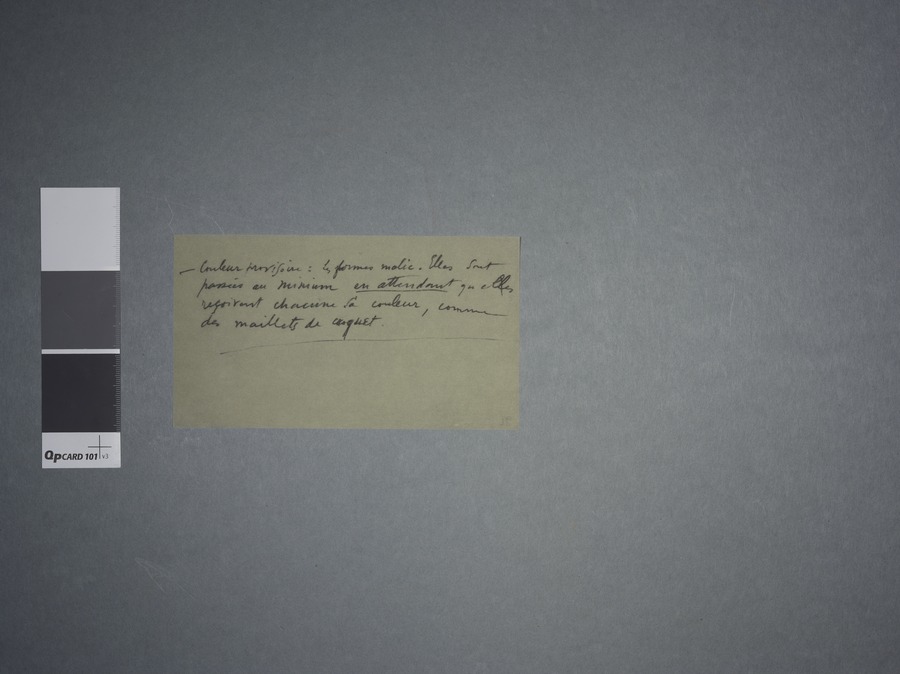 — Couleur provisoire : les formes malic. Elles sont
passées au minium en attendant qu'elles
reçoivent chacune sa couleur, comme
des maillets de croquet.
QPCARD 101 v3